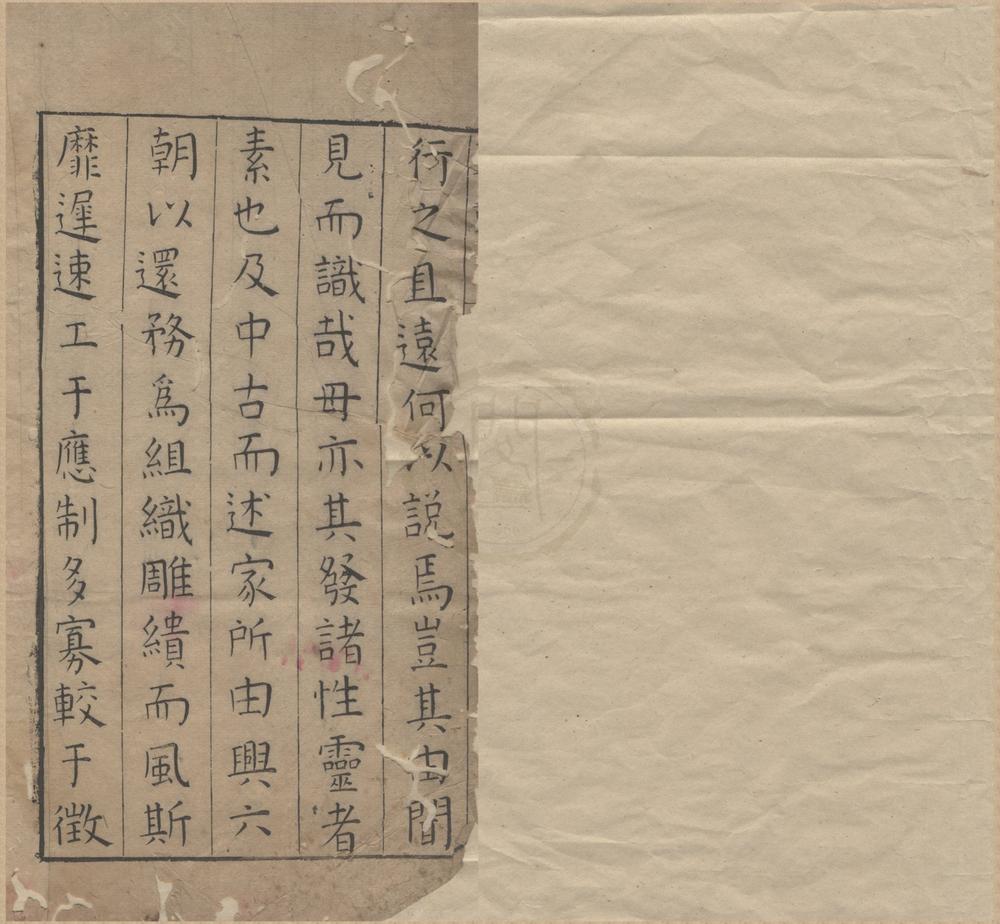 衍之直遠何以說焉豈其由聞
見而識哉毋亦其發諸性靈者
素也及中古而述家所由興六
朝以還務爲組織雕繢而風斯
靡遲速工于應制多寡較于徵